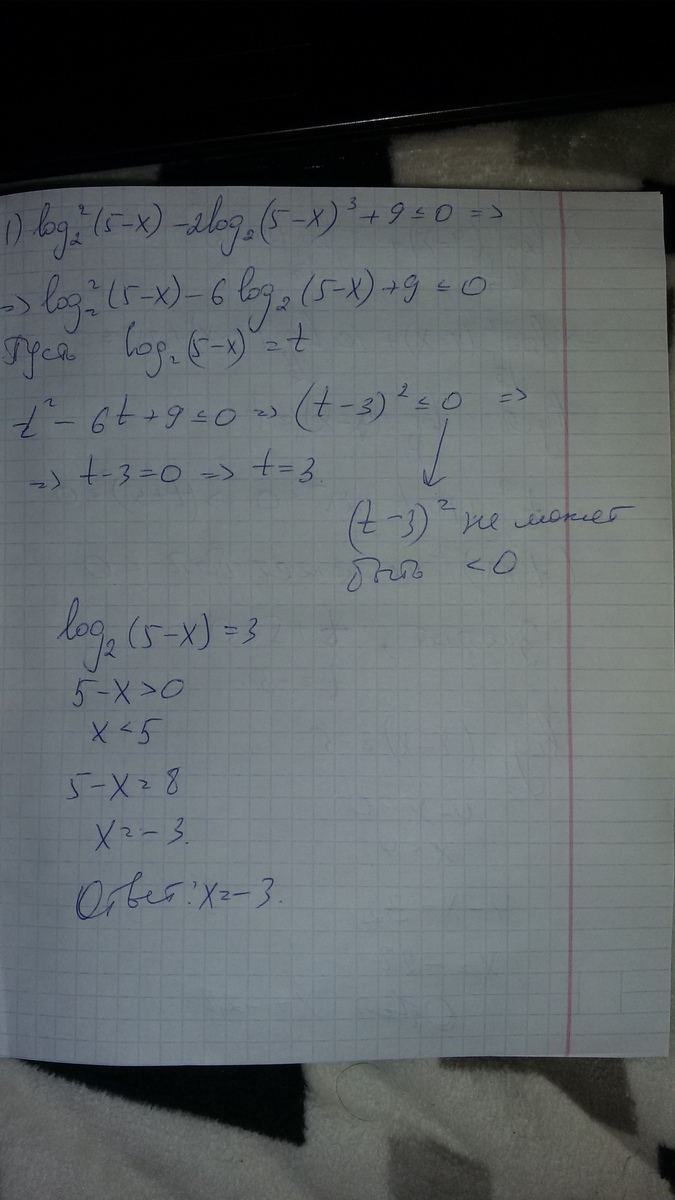 1) log₂²(5-x) -2log₂(5-x)³+9≤0 =>
=> log₂²(5-x)-6log₂(5-x)+9≤0
Пусть log₂(5-x)=t
t²-6t+9≤0 => (t-3)²≤0 =>
=> t-3=0 => t=3.
(t-3)² не может
быть <0
log₂(5-x)=3
5-x>0
x<5
5-x=8
x=-3.
Ответ: x=-3.